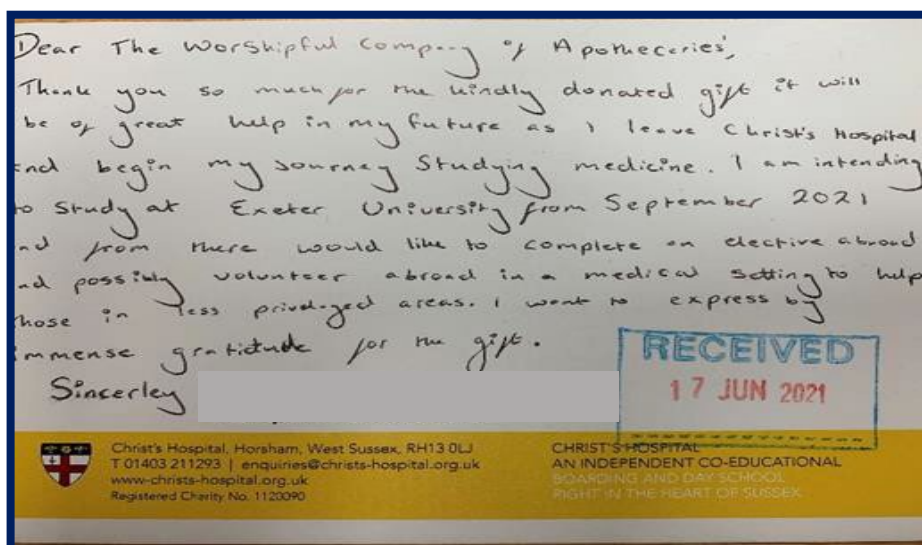 Dear The Worshipful Company of Apothecaries',
Thank you so much for the kindly donated gift it will
be of great help in my future as I leave Christ's Hospital
and begin my journey studying medicine. I am intending
to study at Exeter University from September 2021
nd from there would like to complete an elective abroad
nd possibly volunteer abroad in a medical setting to help
those in less priveleged areas. I want to express by
immense gratidude for the gift.
Sincerley
RECEIVED
17 JUN 2021
Christ's Hospital, Horsham, West Sussex, RH13 0LJ
T 01403 211293 | enquiries@christs-hospital.org.uk
www-christs-hospital.org.uk
Registered Charity No. 1120090
CHRIST'S HOSPITAL
AN INDEPENDENT CO-EDUCATIONAL
BOARDING AND DAY SCHOOL
RIGHT IN THE HEART OF SUSSEX